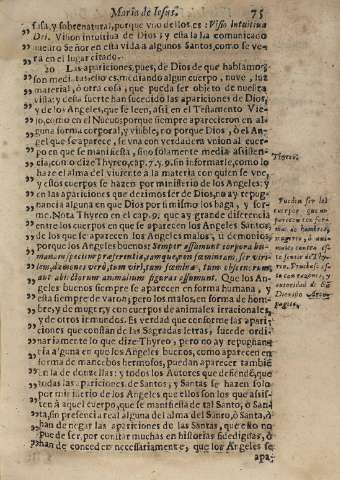 Maria de Iesus. 75
fasa, y sobrenatural, porque vno dellos es: Visio Intuitiua
Dei. Vision Intuitiua de Dios; y esta la ha comunicado
nuestro Señor en esta vida a algunos Santos, como se ve-
ra en el lugar citado.
20 Las apariciones, pues, de Dios de que hablamos,
son mediatas, esto es, mediando algun cuerpo, nuve, luz
material, ò otra cosa, que pueda ser objeto de nuestra
vista: y desta suerte han sucedido las apariciones de Dios,
y de los Angeles, que se leen, assi en el Testamento Vie-
jo, como en el Nuevo; porque siempre aparecieron en al-
guna forma corporal, y visible, no porque Dios, ò el An-
gel que se aparece, se vna con verdadera vnion al cuer-
po en que se manifiesta, sino solamente media assisten-
cia, como lo dize Thyreo, cap. 7. y 9. sin informarle, como lo
haze el alma del viuiente a la materia con quien se vne,
y estos cuerpos se hazen por ministerio de los Angeles: y
en las apariciones que dezimos ser de Dios, no ay repug-
nancia alguna en que Dios por si mismo los haga, y for-
me. Nota Thyreo en el cap. 9. que ay grande diferencia
entre los cuerpos en que se aparecen los Angeles Santos,
y de los que se aparecen los Angeles malos, ù demonios,
porque los Angeles buenos: Semper assumunt corpora hu-
manam speciem præferentia, tamque, non fœminam, ser viri-
lem, dæmones verò, tum viri, tum fœminæ, tum obscœnorum,
aut absidorum animalium figuras assumunt. Que los An-
geles buenos siempre se aparecen en forma humana, y
esta siempre de varon; pero los malos, en forma de hom-
bre, y de muger, y con cuerpos de animales irracionales,
y de otros inmundos. Es verdad que conforme las apari-
ciones que constan de las Sagradas letras, sucede ordi-
nariamente lo que dize Thyreo, pero no ay repugnan-
cia alguna en que los Angeles buenos, como aparecen en
forma de mancebos hermosos, puedan aparecer tambiē
en la de donzellas: y todos los Autores que defiendē, que
todas las apariciones de Santos, y Santas se hazen solo
por ministerio de los Angeles que ellos son los que assis-
ten à aquel cuerpo, que se manifiesta de tal Santo, ò San-
ta, sin presencia real alguna del alma del Santo, ò Santa, ò
han de negar las apariciones de las Santas, que esto no
puede ser, por constar muchas en historias fidedignas, ò
han de conceder necessariamente, que los Angeles se
apa-
Thyreo.
Pueden ser los
cuerpos que a-
parecen con for-
ma de hombre,
mugeres, ò ani-
males contra el
sentir de Thy-
reo. Prueban-
se con razones, y
autoridad de San
Dionisio Areo-
pagita.